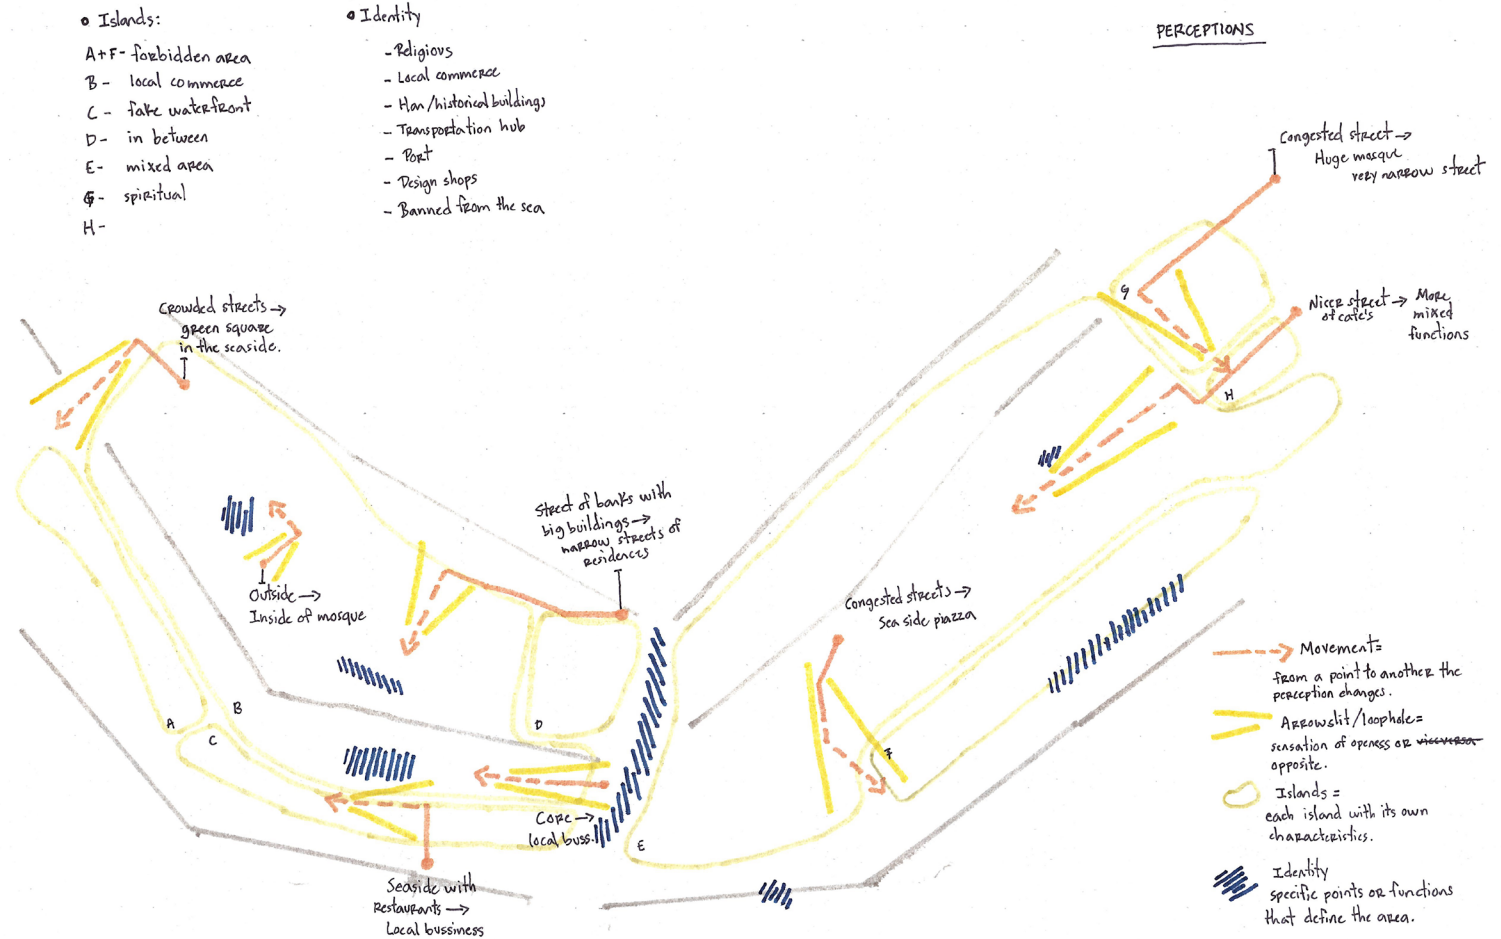 • Islands:
A+F- forbidden area
B- local commerce
C- fake waterfront
D- in between
E- mixed area
G- spiritual
H-
• Identity
- Religious
- Local commerce
- Han/historical buildings
- Transportation hub
- Port
- Design shops
- Banned from the sea
PERCEPTIONS
Congested street →
Huge mosque
very narrow street
Nicer street → More
of cafe's mixed
functions
Crowded streets →
green square
in the seaside.
G
H
Street of banks with
big buildings →
narrow streets of
residences
Outside →
Inside of mosque
Congested streets →
Sea side piazza
A
B
C
D
E
F
Core →
local buss.
Seaside with
Restaurants →
Local bussiness
Movement=
from a point to another the
perception changes.
Arrowslit/loophole=
sensation of openess or viceversa
opposite.
Islands =
each island with its own
characteristics.
Identity
specific points or functions
that define the area.